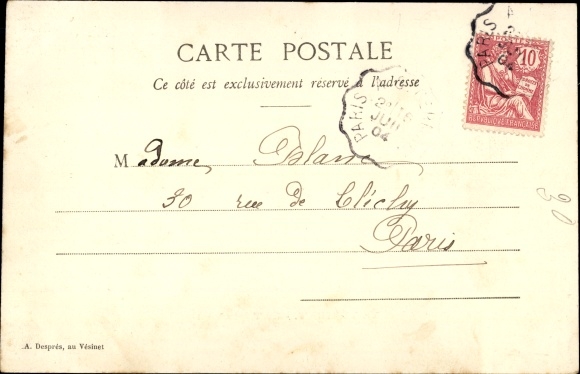 CARTE POSTALE
Ce côté est exclusivement réservé à l'adresse
POSTES
10
RÉPUBLIQUE FRANÇAISE
PARIS
PARIS
JUIN
04
Madame, Blanc
30 rue de Clichy
Paris
30
A. Després, au Vésinet